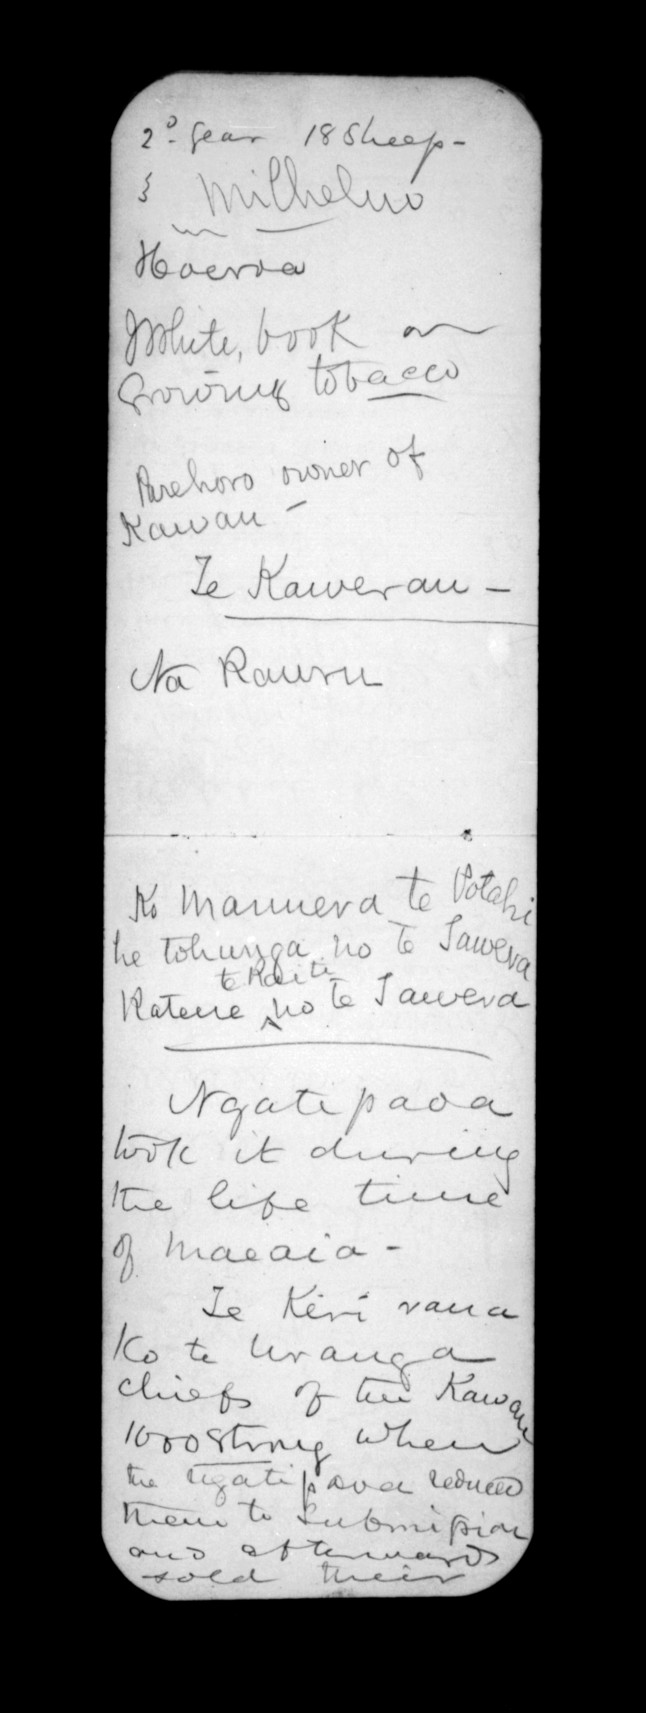 2º. Year 18 Sheep -
Milhelmo
Hoeroa
White, book on
Growing tobacco
Parehoro owner of
Kawau -
Te Kawerau -
Na Rauru
Ko Manuera te Potahi
he tohunga no Te Tawera
Ratene te Raiti no Te Tawera
Ngatipaoa
took it during
the life time
of Maeaia -
Te Kiri rau a
Ko te Uranga
chiefs of the Kawau
1000 strong when
the Ngatipaoa reduced
them to Submission
and afterwards
sold their